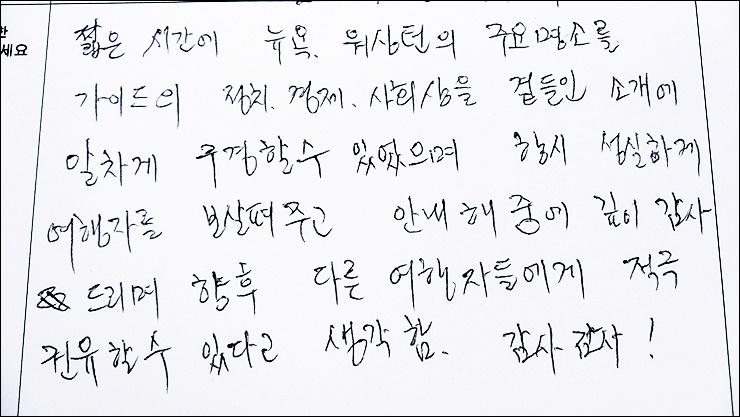 한
세요
짧은 시간에 뉴욕, 워싱턴의 주요명소를
가이드의 정치, 경제, 사회상을 곁들인 소개에
알차게 구경할수 있었으며 항시 성실하게
여행자를 보살펴주고 안내해 중에 깊이 감사
드리며 향후 다른 여행자들에게 적극
권유할수 있다고 생각함. 감사 감사!